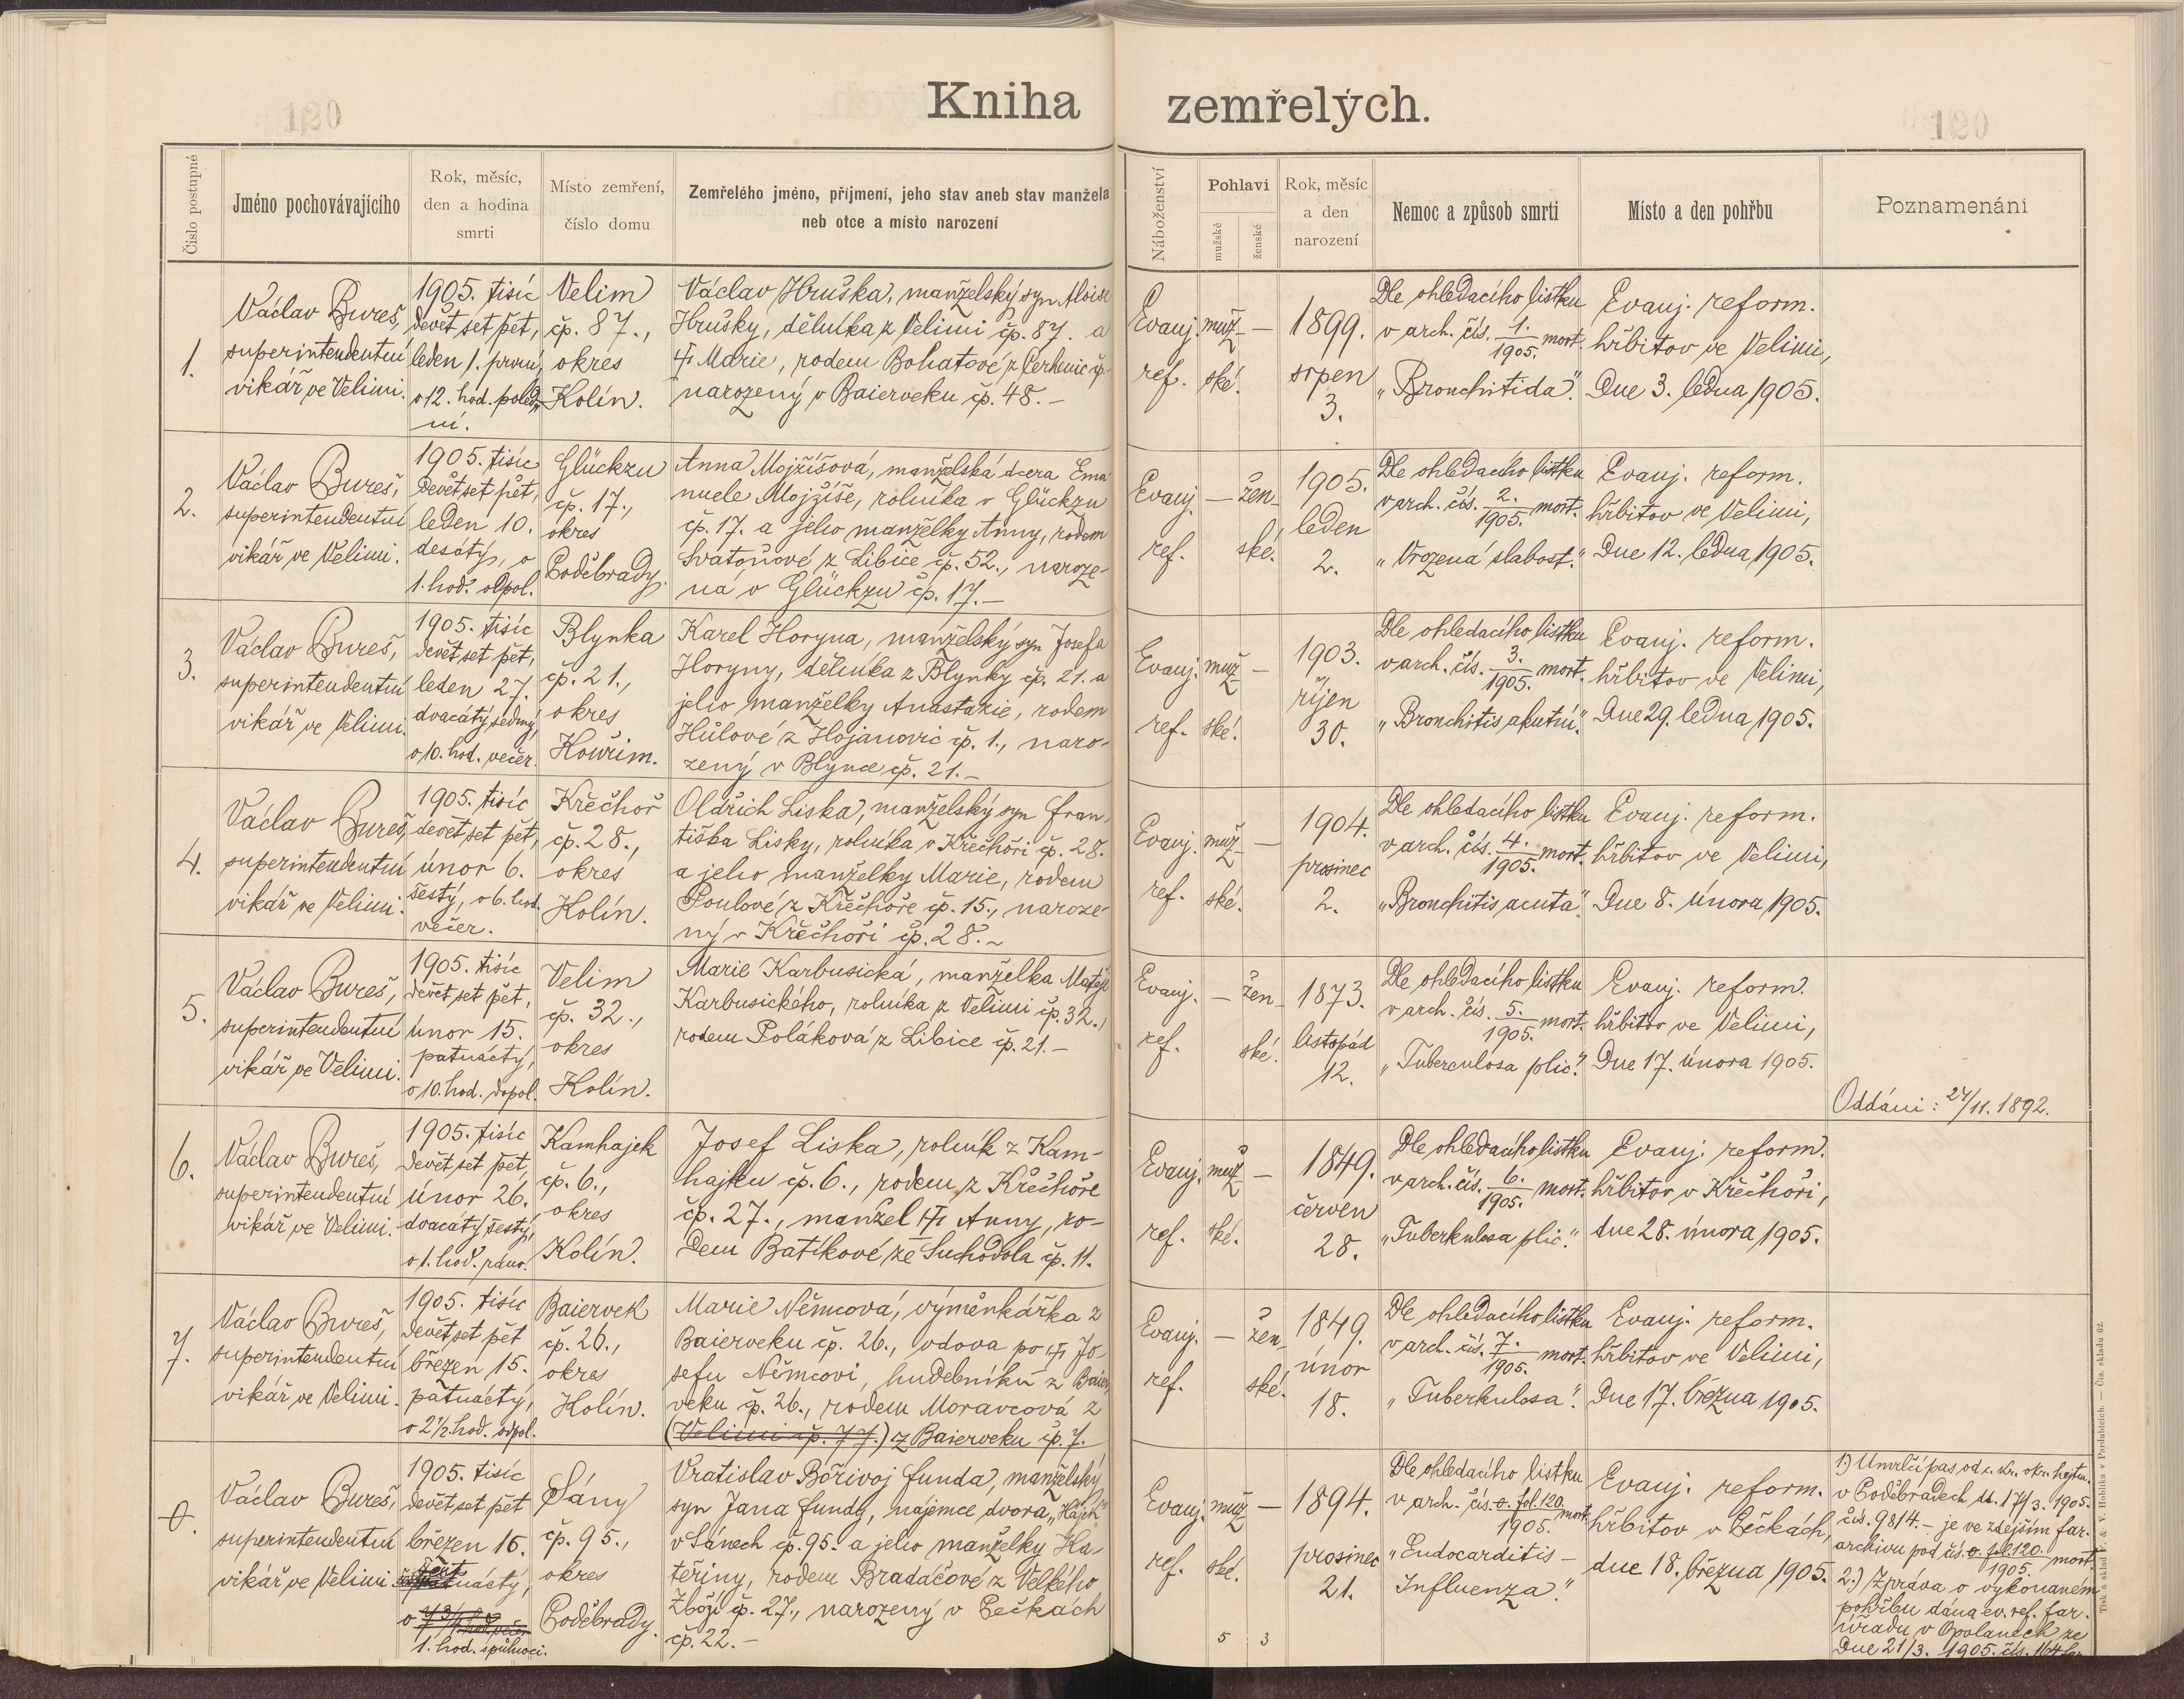 Kniha zemřelých.
120
120
Číslo postupné
Jméno pochovávajícího
Rok, měsíc,
den a hodina
smrti
Místo zemření,
číslo domu
Zemřelého jméno, příjmení, jeho stav aneb stav manžela
neb otce a místo narození
Náboženství
Pohlaví
mužské
ženské
Rok, měsíc
a den
narození
Nemoc a způsob smrti
Místo a den pohřbu
Poznamenání
1.
Václav Bureš,
superintendentní
vikář ve Velimi.
1905. tisíc
devět set pět,
leden 1. první,
o 12. hod. poled-
ní.
Velim
čp. 87.,
okres
Kolín.
Václav Hruška, manželský syn Aloise
Hrušky, dělníka z Velimi čp. 87. a
Marie, rodem Bohatové z Cerhenic čp.
narozený v Baierveku čp. 48. –
Evanj.
ref.
muž-
ské.
—
1899.
srpen
3.
Dle ohledacího lístku
v arch. čís. 1./1905. mort.
„Bronchitida".
Evanj. reform.
hřbitov ve Velimi,
Dne 3. ledna 1905.
2.
Václav Bureš,
superintendentní
vikář ve Velimi.
1905. tisíc
devět set pět,
leden 10.
desátý, o
1. hod. odpol.
Glückzu
čp. 17.,
okres
Poděbrady.
Anna Mojžíšová, manželská dcera Ema-
nuele Mojžíše, rolníka v Glückzu
čp. 17. a jeho manželky Anny, rodem
Svatoňové z Libice čp. 52., naroze-
ná v Glückzu čp. 17. –
Evanj.
ref.
—
žen-
ské.
1905.
leden
2.
Dle ohledacího lístku
v arch. čís. 2./1905. mort.
„Vrozená slabost."
Evanj. reform.
hřbitov ve Velimi,
Dne 12. ledna 1905.
3.
Václav Bureš,
superintendentní
vikář ve Velimi.
1905. tisíc
devět set pět,
leden 27.
dvacátý sedmý,
o 10. hod. večer.
Blynka
čp. 21.,
okres
Kouřim.
Karel Horyna, manželský syn Josefa
Horyny, dělníka z Blynky čp. 21. a
jeho manželky Anastazie, rodem
Hůlové z Hojanovic čp. 1., naro-
zený v Blynce čp. 21. –
Evanj.
ref.
muž-
ské.
—
1903.
říjen
30.
Dle ohledacího lístku
v arch. čís. 3./1905. mort.
„Bronchitis akutní."
Evanj. reform.
hřbitov ve Velimi,
Dne 29. ledna 1905.
4.
Václav Bureš,
superintendentní
vikář ve Velimi.
1905. tisíc
devět set pět,
únor 6.
šestý, o 6. hod.
večer.
Křečhoř
čp. 28.,
okres
Kolín.
Oldřich Liska, manželský syn Fran-
tiška Lisky, rolníka v Křečhoři čp. 28.
a jeho manželky Marie, rodem
Poulové z Křečhoře čp. 15., naroze-
ný v Křečhoři čp. 28. ~
Evanj.
ref.
muž-
ské.
—
1904.
prosinec
2.
Dle ohledacího lístku
v arch. čís. 4./1905. mort.
„Bronchitis acuta".
Evanj. reform.
hřbitov ve Velimi,
Dne 8. února 1905.
5.
Václav Bureš,
superintendentní
vikář ve Velimi.
1905. tisíc
devět set pět,
únor 15.
patnáctý,
o 10. hod. dopol.
Velim
čp. 32.,
okres
Kolín.
Marie Karbusická, manželka Matěje
Karbusického, rolníka z Velimi čp. 32.,
rodem Poláková z Libice čp. 21. –
Evanj.
ref.
—
žen-
ské.
1873.
listopád
12.
Dle ohledacího lístku
v arch. čís. 5./1905. mort.
„Tuberculosa plic."
Evanj. reform.
hřbitov ve Velimi,
Dne 17. února 1905.
Oddáni: 24/11. 1892.
6.
Václav Bureš,
superintendentní
vikář ve Velimi.
1905. tisíc
devět set pět,
únor 26.
dvacátý šestý,
o 1. hod. ráno.
Kamhajek
čp. 6.,
okres
Kolín.
Josef Liska, rolník z Kam-
hajku čp. 6., rodem z Křečhoře
čp. 27., manžel Anny, ro-
dem Batíkové ze Suchdola čp. 11.
Evanj.
ref.
muž-
ské.
—
1849.
červen
28.
Dle ohledacího lístku
v arch. čís. 6./1905. mort.
„Tuberkulosa plic."
Evanj. reform.
hřbitov v Křečhoři,
dne 28. února 1905.
7.
Václav Bureš,
superintendentní
vikář ve Velimi.
1905. tisíc
devět set pět
březen 15.
patnáctý,
o 2½. hod. odpol.
Baiervek
čp. 26.,
okres
Kolín.
Marie Němcová, výměnkářka z
Baierveku čp. 26., vdova po Jo-
sefu Němcovi, hudebníku z Baier-
veku čp. 26., rodem Moravcová z
(Velimi čp. 77.) z Baierveku čp. 7.
Evanj.
ref.
—
žen-
ské.
1849.
únor
18.
Dle ohledacího lístku
v arch. čís. 7./1905. mort.
„Tuberkulosa".
Evanj. reform.
hřbitov ve Velimi,
Dne 17. března 1905.
0.
Václav Bureš,
superintendentní
vikář ve Velimi.
1905. tisíc
devět set pět
březen 16.
šestnáctý,
o 7¾ hod. večer
1. hod. s půlnoci.
Sány
čp. 95.,
okres
Poděbrady.
Vratislav Bořivoj Funda, manželský
syn Jana Fundy, nájemce dvora „Hájek"
v Sánech čp. 95. a jeho manželky Ka-
teřiny, rodem Bradáčové z Velkého
Zboží čp. 27., narozený v Pečkách
čp. 22. –
Evanj.
ref.
muž-
ské.
—
1894.
prosinec
21.
Dle ohledacího lístku
v arch. čís. o. fol. 120./1905. mort.
„Endocarditis –
Influenza".
Evanj. reform.
hřbitov v Pečkách,
dne 18. března 1905.
1) Umrlčí pas od c. kr. okr. hejtm.
v Poděbradech dd. 17/3. 1905.
čís. 9814. – je ve zdejším far.
archivu pod čís. o. fol. 120./1905. mort.
2.) Zpráva o vykonaném
pohřbu dána ev. ref. far.
úřadu v Opolanech ze
Dne 21/3. 1905. čís. 164
5 3
Tisk a sklad F. & V. Hoblíka v Pardubicích. — Čís. skladu 62.